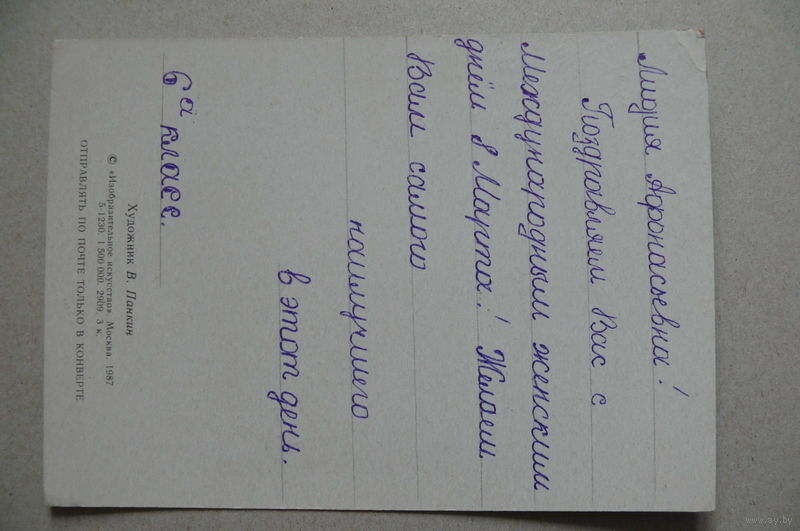 Лидия Афонасьевна!
Поздравляем Вас с
Международным женским
днём 8 Марта! Желаем
Вам самого
наилучшего
в этот день.
6а класс.
Художник В. Панкин
© «Изобразительное искусство». Москва. 1987
5-1230. 1 500 000. 2909. 3 к.
ОТПРАВЛЯТЬ ПО ПОЧТЕ ТОЛЬКО В КОНВЕРТЕ
www.ay.by